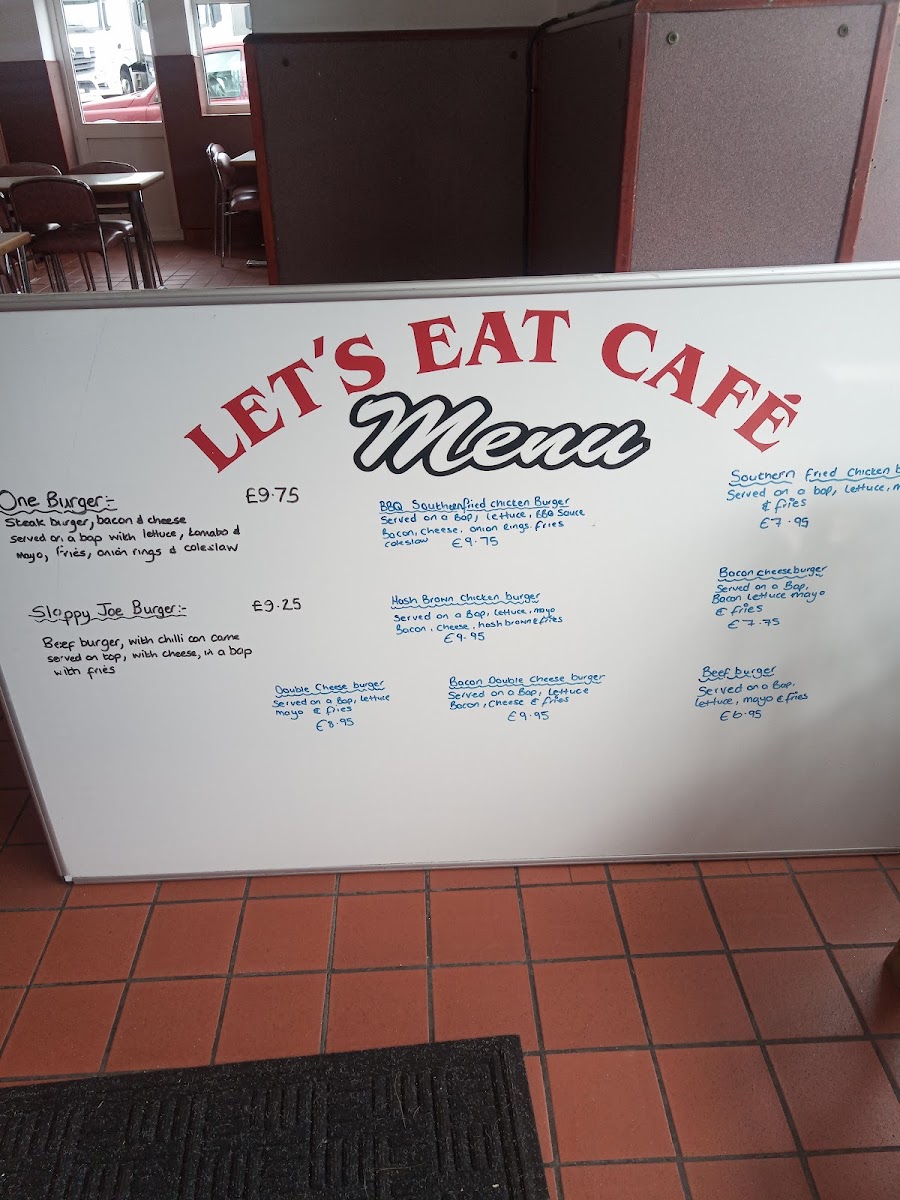 LET'S EAT CAFÉ
Menu
One Burger:- £9.75
Steak burger, bacon & cheese
served on a bap with lettuce, tomato &
mayo, fries, onion rings & coleslaw
Sloppy Joe Burger:- £9.25
Beef burger, with chilli con carne
served on top, with cheese, in a bap
with fries
BBQ Southernfried chicken Burger
Served on a Bap, lettuce, BBQ Sauce
Bacon, cheese, onion rings. fries
coleslaw £9.75
Hash Brown chicken burger
Served on a Bap, lettuce, mayo
Bacon, cheese, hash brown & fries
£9.95
Double Cheese burger
Served on a Bap, lettuce
mayo & fries
£8.95
Bacon Double cheese burger
Served on a Bap, lettuce
Bacon, cheese & fries
£9.95
Southern fried chicken
Served on a bap, lettuce,
& fries
£7.95
Bacon cheeseburger
Served on a Bap,
Bacon lettuce mayo
& fries
£7.75
Beef burger
Served on a Bap,
lettuce, mayo & fries
£6.95